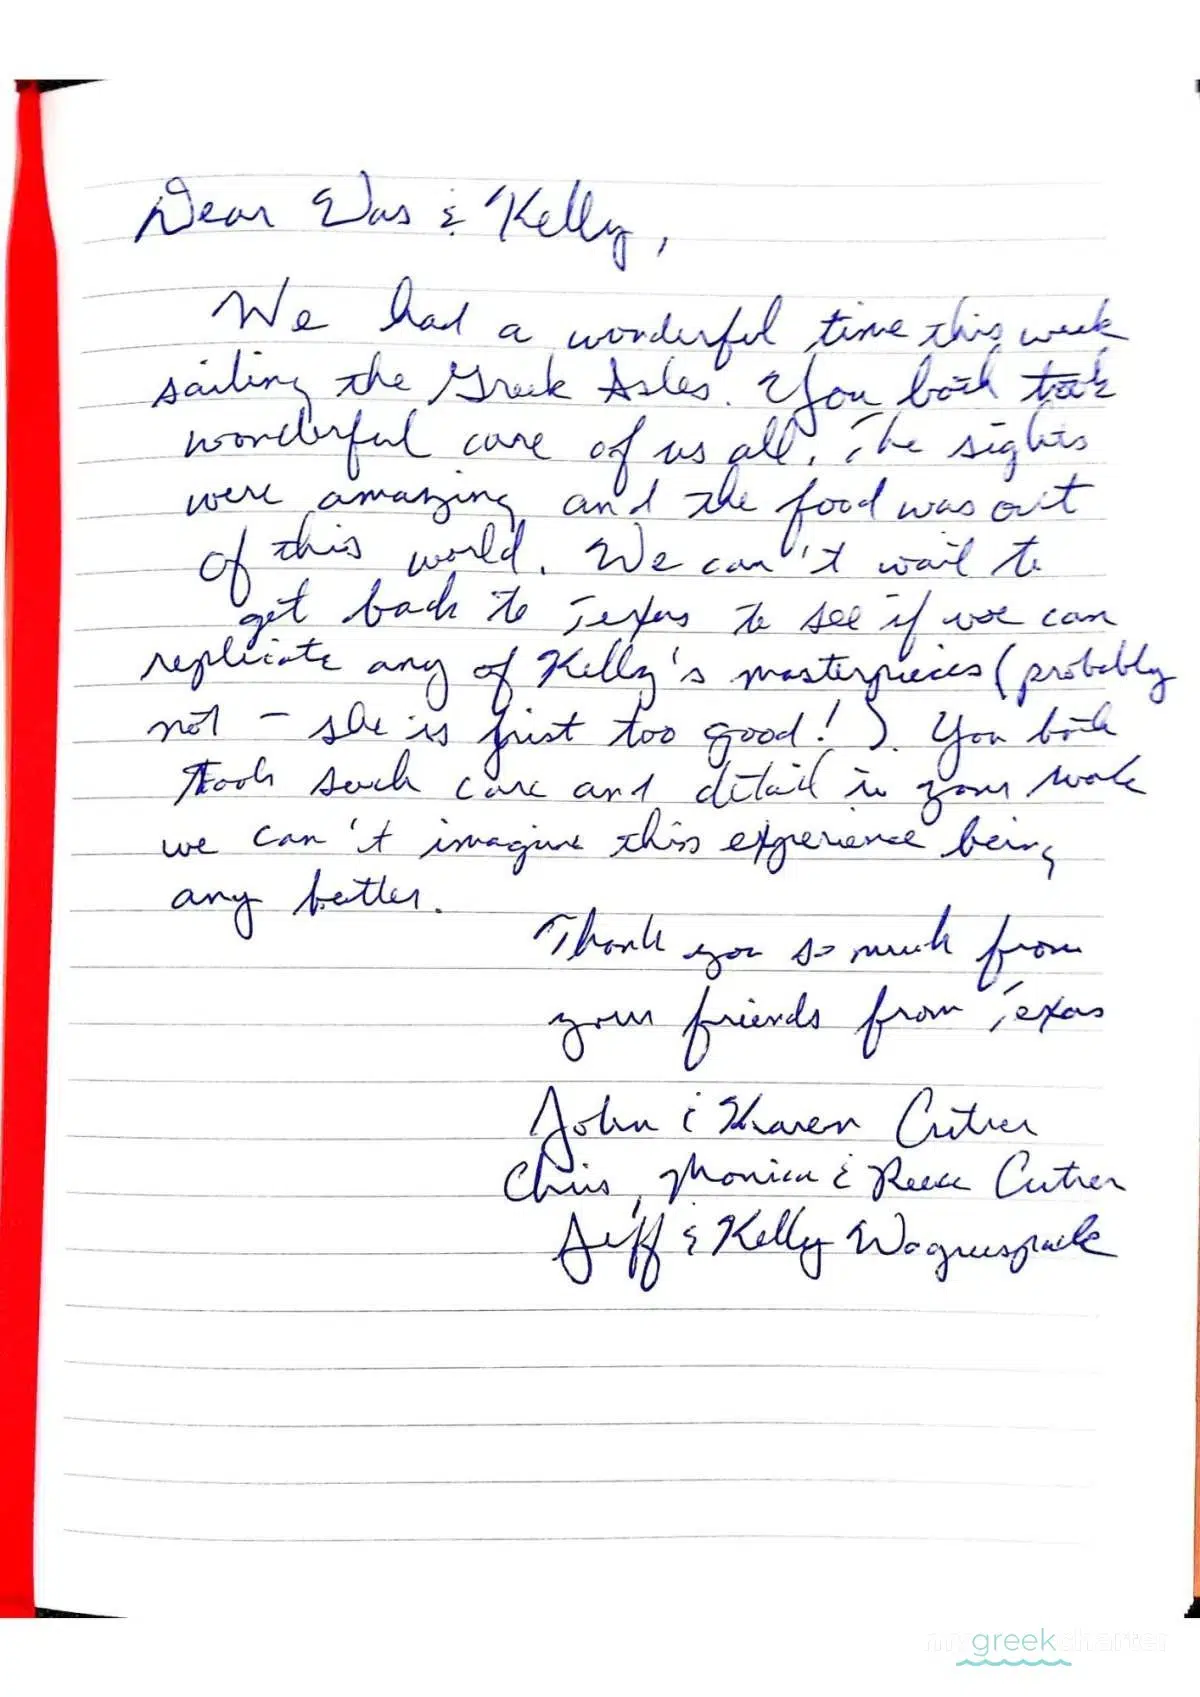 Dear Vas & Kelly,
We had a wonderful time this week
sailing the Greek Isles. You both took
wonderful care of us all. The sights
were amazing and the food was out
of this world. We can't wait to
get back to Texas to see if we can
replicate any of Kelly's masterpieces (probably
not - she is just too good!). You both
took such care and detail in your work
we can't imagine this experience being
any better.
Thank you so much from
your friends from Texas
John & Karen Cutrer
Chris, Monica & Reece Cutrer
Jeff & Kelly Waguespack
my greek charter